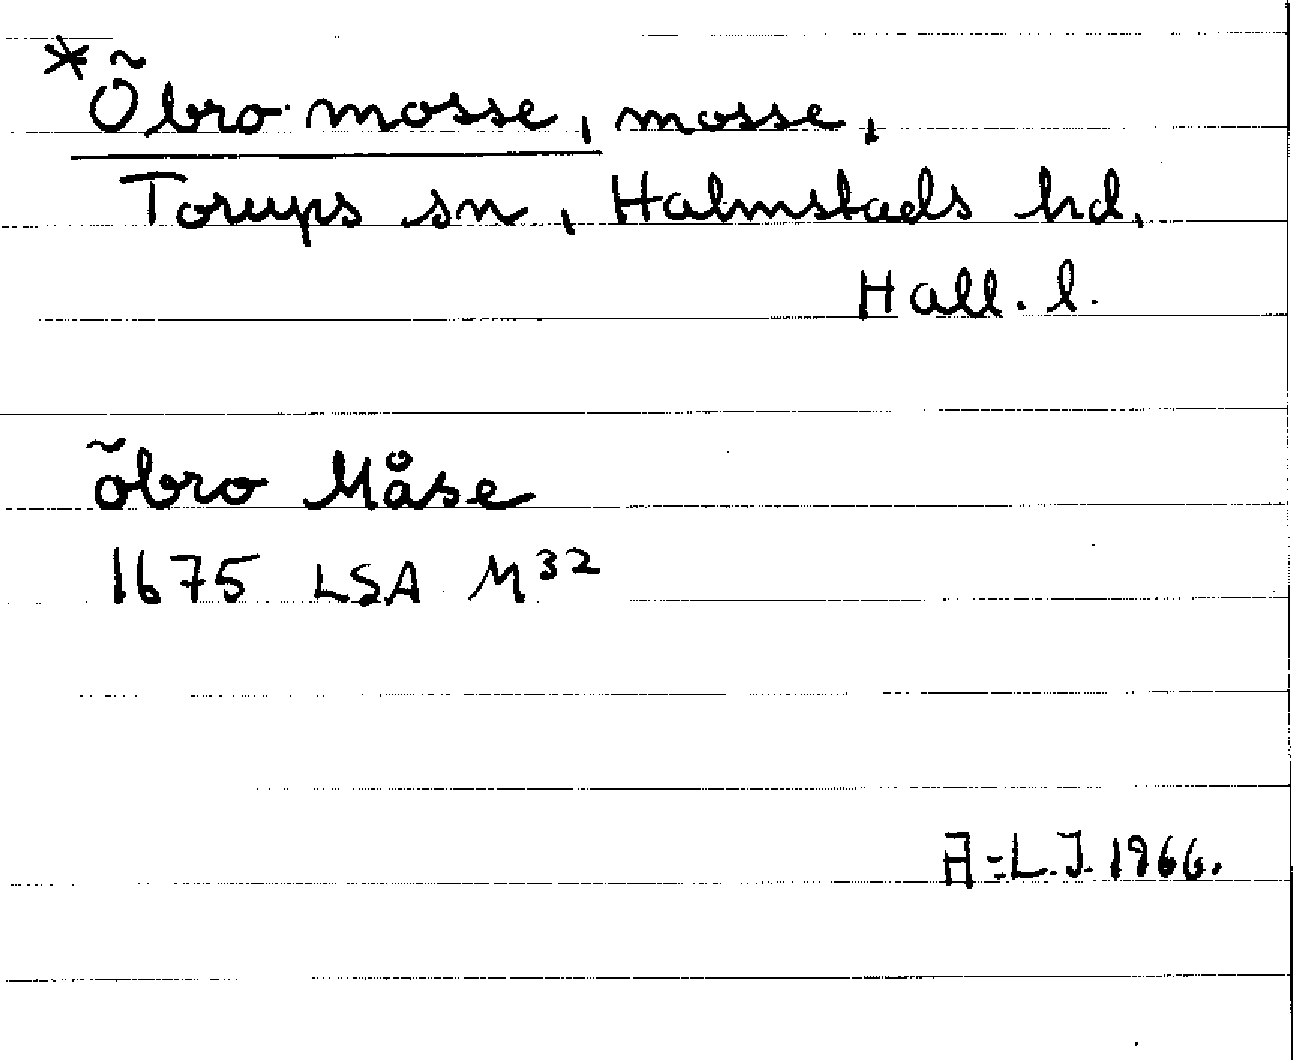 *Õbro mosse, mosse,
Torups sn, Halmstads hd,
Hall. l.
õbro Måse
1675 LSA M³²
A-L.J. 1966.